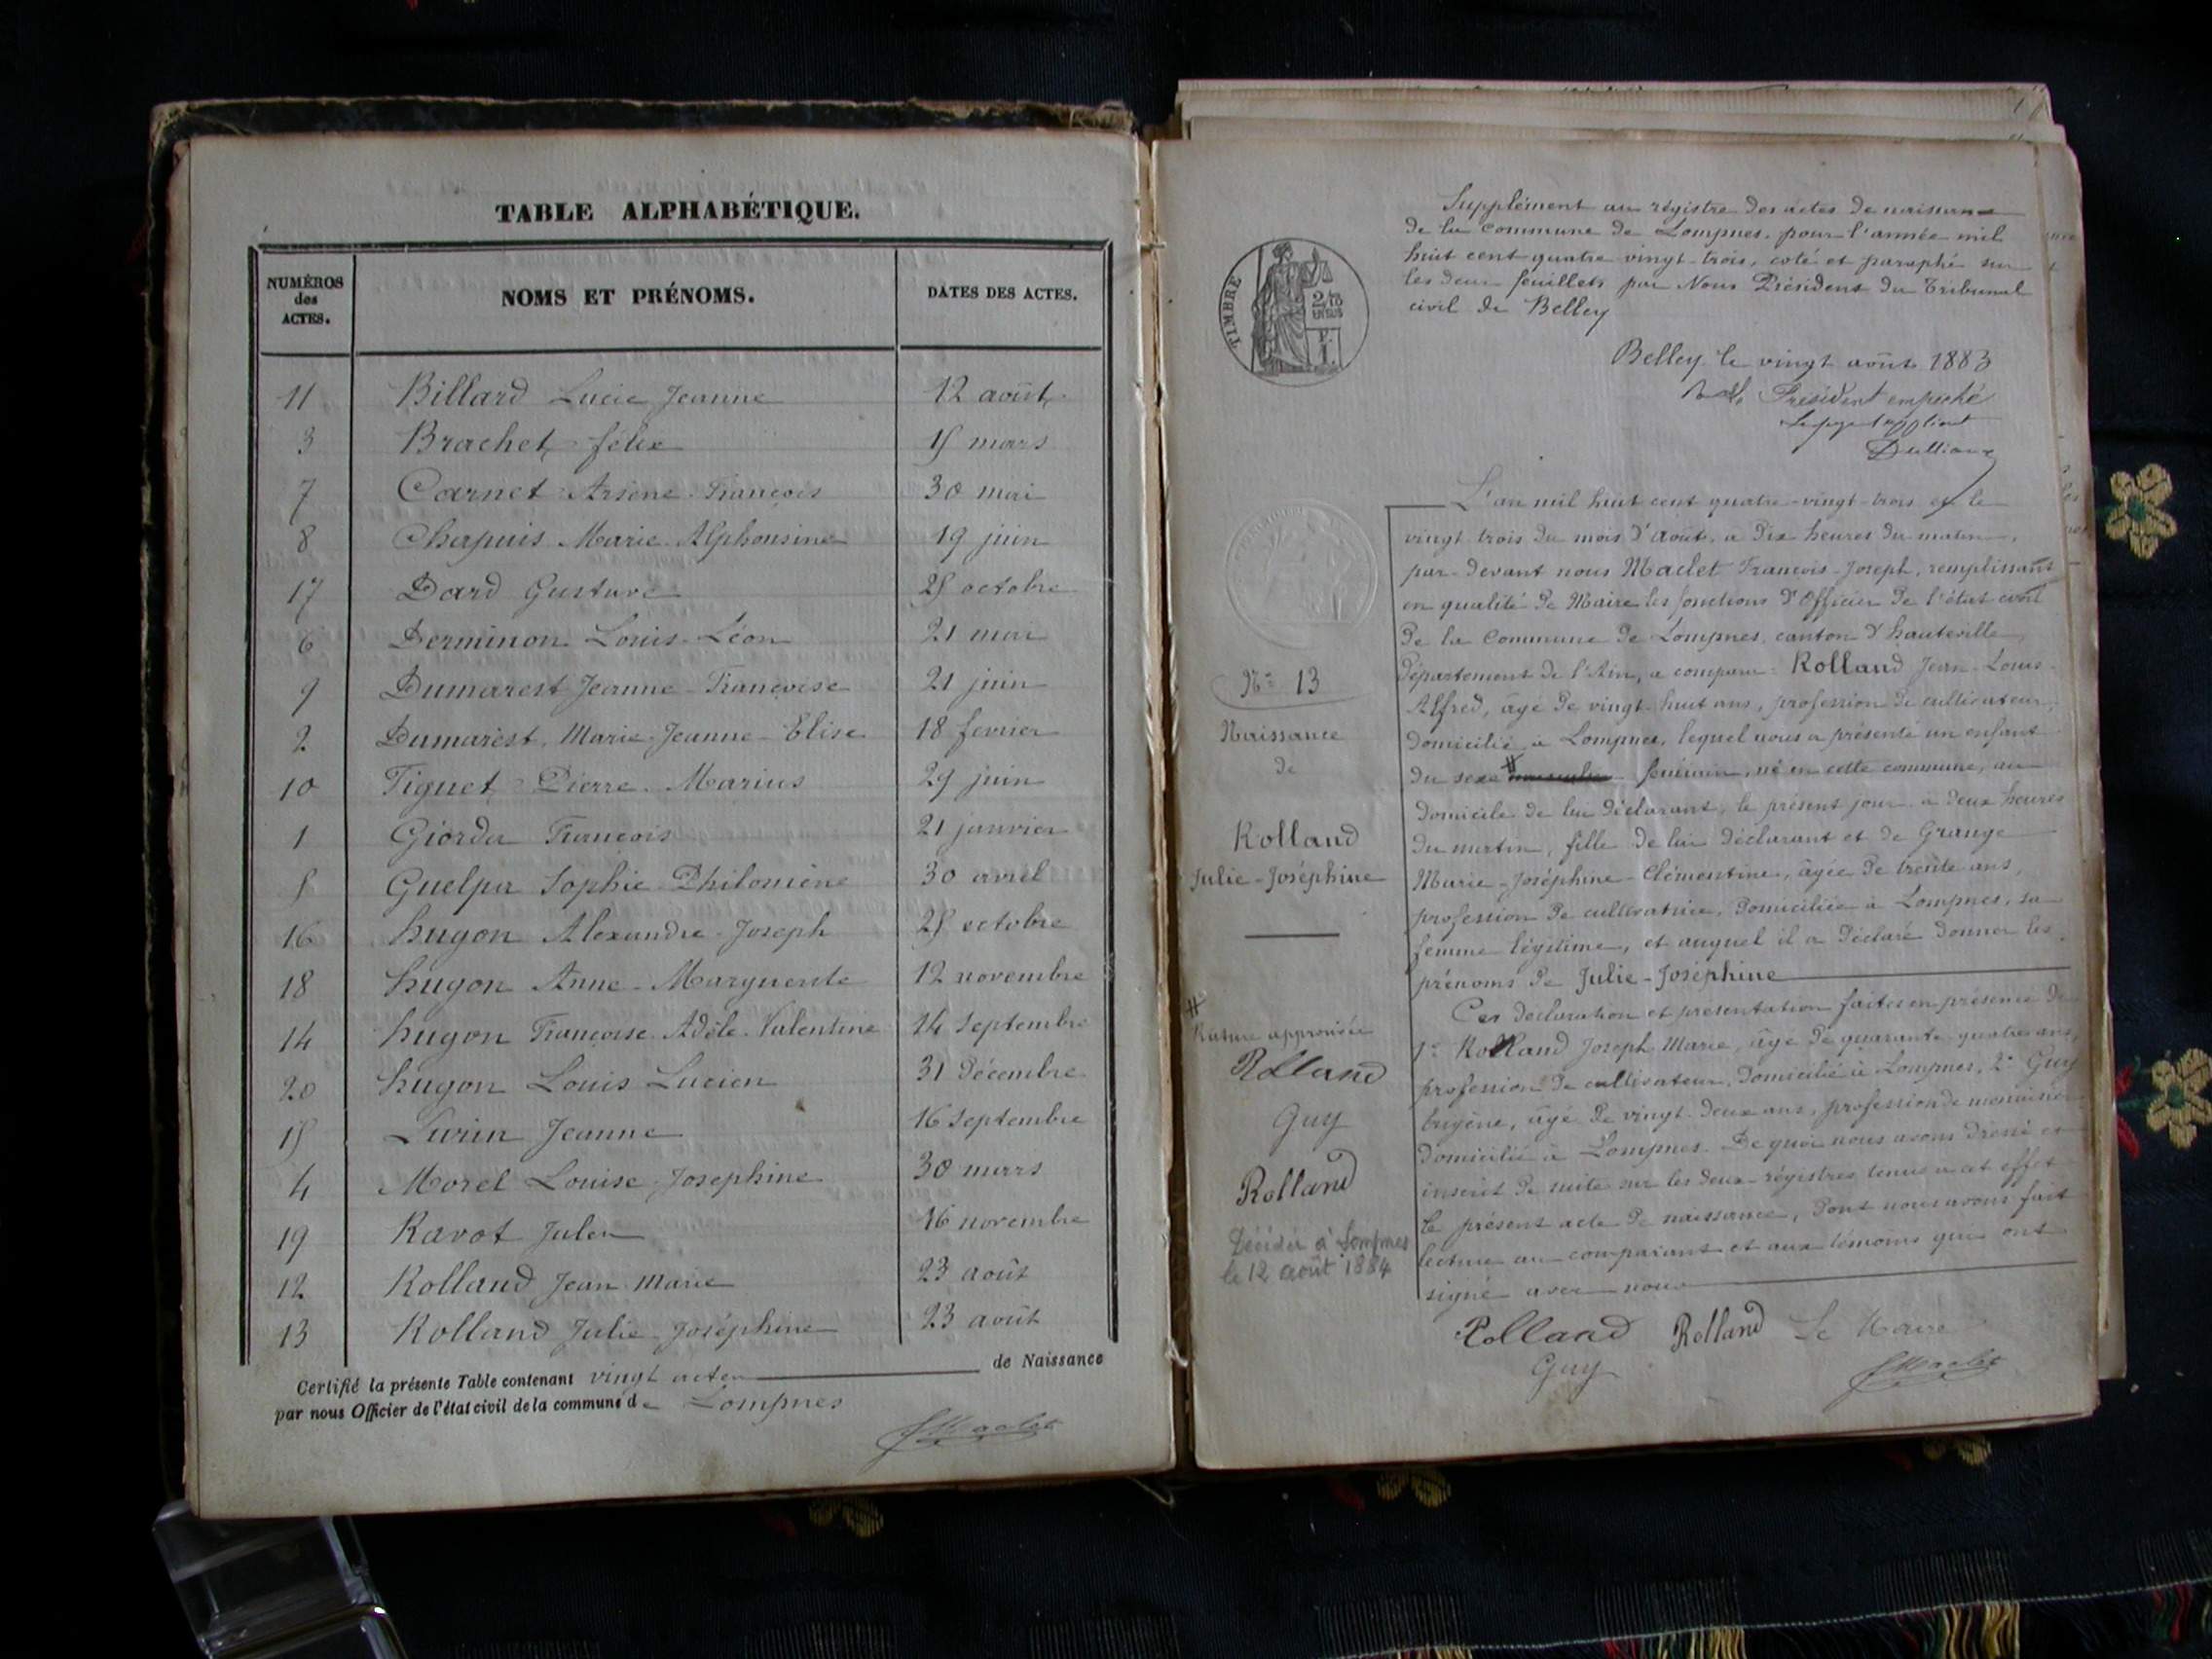 TABLE ALPHABÉTIQUE.
NUMÉROS des ACTES. NOMS ET PRÉNOMS. DATES DES ACTES.
11 Billard Lucie Jeanne 12 août
3 Brachet félix 15 mars
7 Carnet Arsène François 30 mai
8 Chapuis Marie Alphonsine 19 juin
17 Dard Gustave 25 octobre
6 Derminon Louis Léon 21 mai
9 Dumarest Jeanne Françoise 21 juin
2 Dumarest Marie Jeanne Elise 18 fevrier
10 Figuet Pierre Marius 29 juin
1 Giorda François 21 janvier
5 Guelpa Sophie Philomène 30 avril
16 hugon Alexandre Joseph 25 octobre
18 hugon Anne Marguerite 12 novembre
14 hugon Françoise Adèle Valentine 14 Septembre
20 hugon Louis Lucien 31 Décembre
15 Jeanne 16 Septembre
4 Morel Louise Josephine 30 mars
19 Ravot Jules 16 novembre
12 Rolland Jean Marie 23 août
13 Rolland Julie Joséphine 23 août
Certifié la présente Table contenant vingt actes de Naissance
par nous Officier de l'état civil de la commune de Lompnes
FMaclet
TIMBRE
Supplément au régistre des actes de naissance
de la commune de Lompnes, pour l'année mil
huit cent quatre vingt-trois, coté et paraphé sur
les deux feuillets par Nous Président du Tribunal
civil de Belley
Belley le vingt août 1883
Président empêché
Le juge suppléant
L'an mil huit cent quatre-vingt-trois et le
vingt trois du mois d'août, à dix heures du matin,
par-devant nous Maclet François-Joseph, remplissant
en qualité de Maire les fonctions d'Officier de l'état civil
de la Commune de Lompnes, canton d'hauteville
Département de l'Ain, a comparu Rolland Jean-Louis
Alfred, âgé de vingt-huit ans, profession de cultivateur,
domicilié à Lompnes, lequel nous a présenté un enfant
du sexe # féminin, né en cette commune, au
domicile de lui déclarant, le présent jour à deux heures
du matin, fille de lui déclarant et de Grange
Marie-Joséphine-Clémentine, âgée de trente ans,
profession de cultivatrice, domiciliée à Lompnes, sa
femme légitime, et auquel il a déclaré donner les
prénoms de Julie-Joséphine
Ces déclaration et présentation faites en présence de
1° Rolland Joseph Marie, âgé de quarante-quatre ans,
profession de cultivateur, domicilié à Lompnes, 2° Guy
Eugène, âgé de vingt-deux ans, profession de menuisier
domicilié à Lompnes. De quoi nous avons dressé et
inscrit de suite sur les deux régistres tenus à cet effet
le présent acte de naissance, dont nous avons fait
lecture au comparant et aux témoins qui ont
signé avec nous
Rolland Rolland Le Maire
Guy FMaclet
N° 13
Naissance
de
Rolland
Julie-Joséphine
#
Rature approuvée
Rolland
Guy
Rolland
Décédée à Lompnes
le 12 août 1884